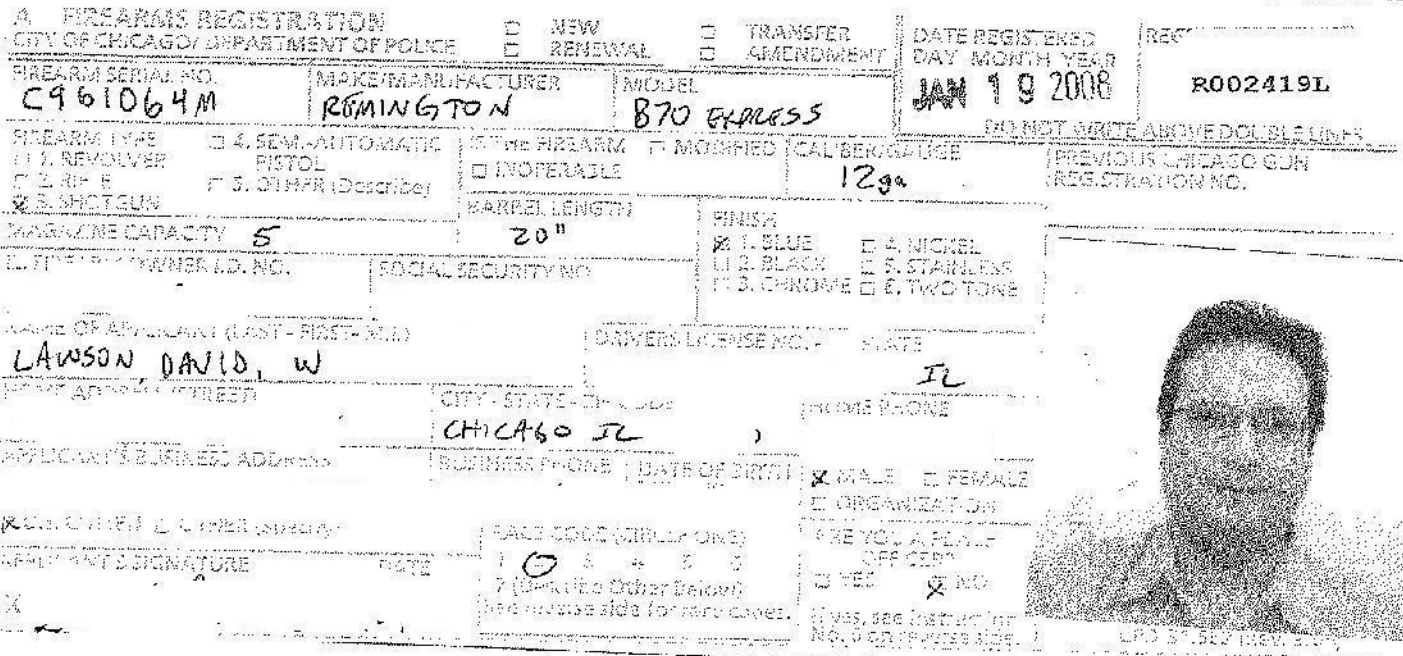 A. FIREARMS REGISTRATION
CITY OF CHICAGO/ DEPARTMENT OF POLICE
□ NEW □ TRANSFER
□ RENEWAL □ AMENDMENT
DATE REGISTERED
DAY MONTH YEAR
JAN 19 2008
REG
R002419L
DO NOT WRITE ABOVE DOUBLE LINES
FIREARM SERIAL NO.
C961064M
MAKE/MANUFACTURER
REMINGTON
MODEL
870 EXPRESS
FIREARM TYPE
□ 1. REVOLVER
□ 2. RIFLE
☒ 3. SHOTGUN
□ 4. SEMI-AUTOMATIC
PISTOL
□ 5. OTHER (Describe)
IS THE FIREARM □ MODIFIED
□ INOPERABLE
CALIBER/GAUGE
12ga
PREVIOUS CHICAGO GUN
REGISTRATION NO.
MAGAZINE CAPACITY 5
BARREL LENGTH
20"
FINISH
☒ 1. BLUE □ 4. NICKEL
□ 2. BLACK □ 5. STAINLESS
□ 3. CHROME □ 6. TWO TONE
OWNER I.D. NO.
SOCIAL SECURITY NO
NAME OF APPLICANT (LAST - FIRST - M.I.)
LAWSON, DAVID, W
DRIVERS LICENSE NO. - STATE
IL
HOME ADDRESS (STREET)
CITY - STATE - ZIP CODE
CHICAGO IL
HOME PHONE
APPLICANT'S BUSINESS ADDRESS
BUSINESS PHONE
DATE OF BIRTH
☒ MALE □ FEMALE
□ ORGANIZATION
☒ U.S. CITIZEN □ OTHER (Specify)
RACE CODE (CIRCLE ONE)
1 3 4 5 6
7 (Describe Other Below)
See reverse side for race codes.
ARE YOU A PEACE
OFFICER?
□ YES ☒ NO
If yes, see instruction
No. 6 on reverse side.
APPLICANT'S SIGNATURE DATE
X